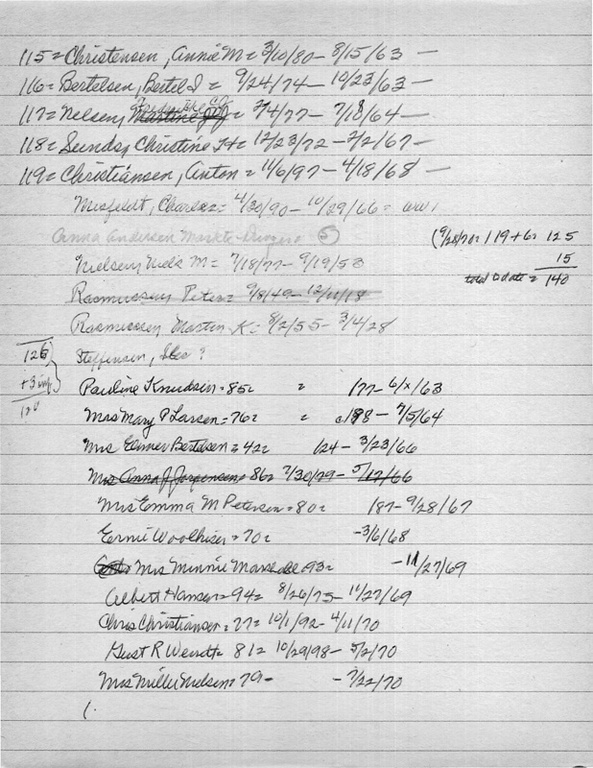 115 = Christensen, Annie M = 3/10/80 - 8/15/63 -
116 = Bertelsen, Bertel S = 9/24/74 - 10/23/63 -
117 = Nelsen, = 2/4/77 - 7/18/64 -
118 = Sunds, Christine H = 12/23/72 - 2/2/67 -
119 = Christiansen, Anton = 11/6/97 - 4/18/68 -
Misfeldt, Charles = 4/30/90 - 10/29/66 = WW1
Anna Andersen Markt- 5
(9/28/70 = 119 + 6 = 125
Nielsen, Niels M = 7/18/77 - 9/19/53
15
total to date = 140
Rasmussen Peter = 9/8/49 - 12/11/18
Rasmussen Martin K = 8/2/55 - 3/4/28
126
Steffensen, ?
+ 3
120
Pauline Knudsen = 85 = 177 - 6/x/63
Mrs Mary P Larsen = 76 = 188 - 7/5/64
Mrs Elmer Bertelsen = 42 = 124 - 3/23/66
Mrs Anna J Jorgensen = 86 = 7/30/79 - 5/17/66
Mrs Emma M Petersen = 80 = 187 - 9/28/67
Ernie Woolhiser = 70 = - 3/6/68
Mrs Minnie 93 = - 11/27/69
Albert Hansen = 94 = 8/26/75 - 11/27/69
Chris Christiansen = 77 = 10/1/92 - 4/11/70
Gust R Wendt = 81 = 10/29/98 - 5/2/70
Mrs Millie Nielsen = 79 - - 7/22/70
(.